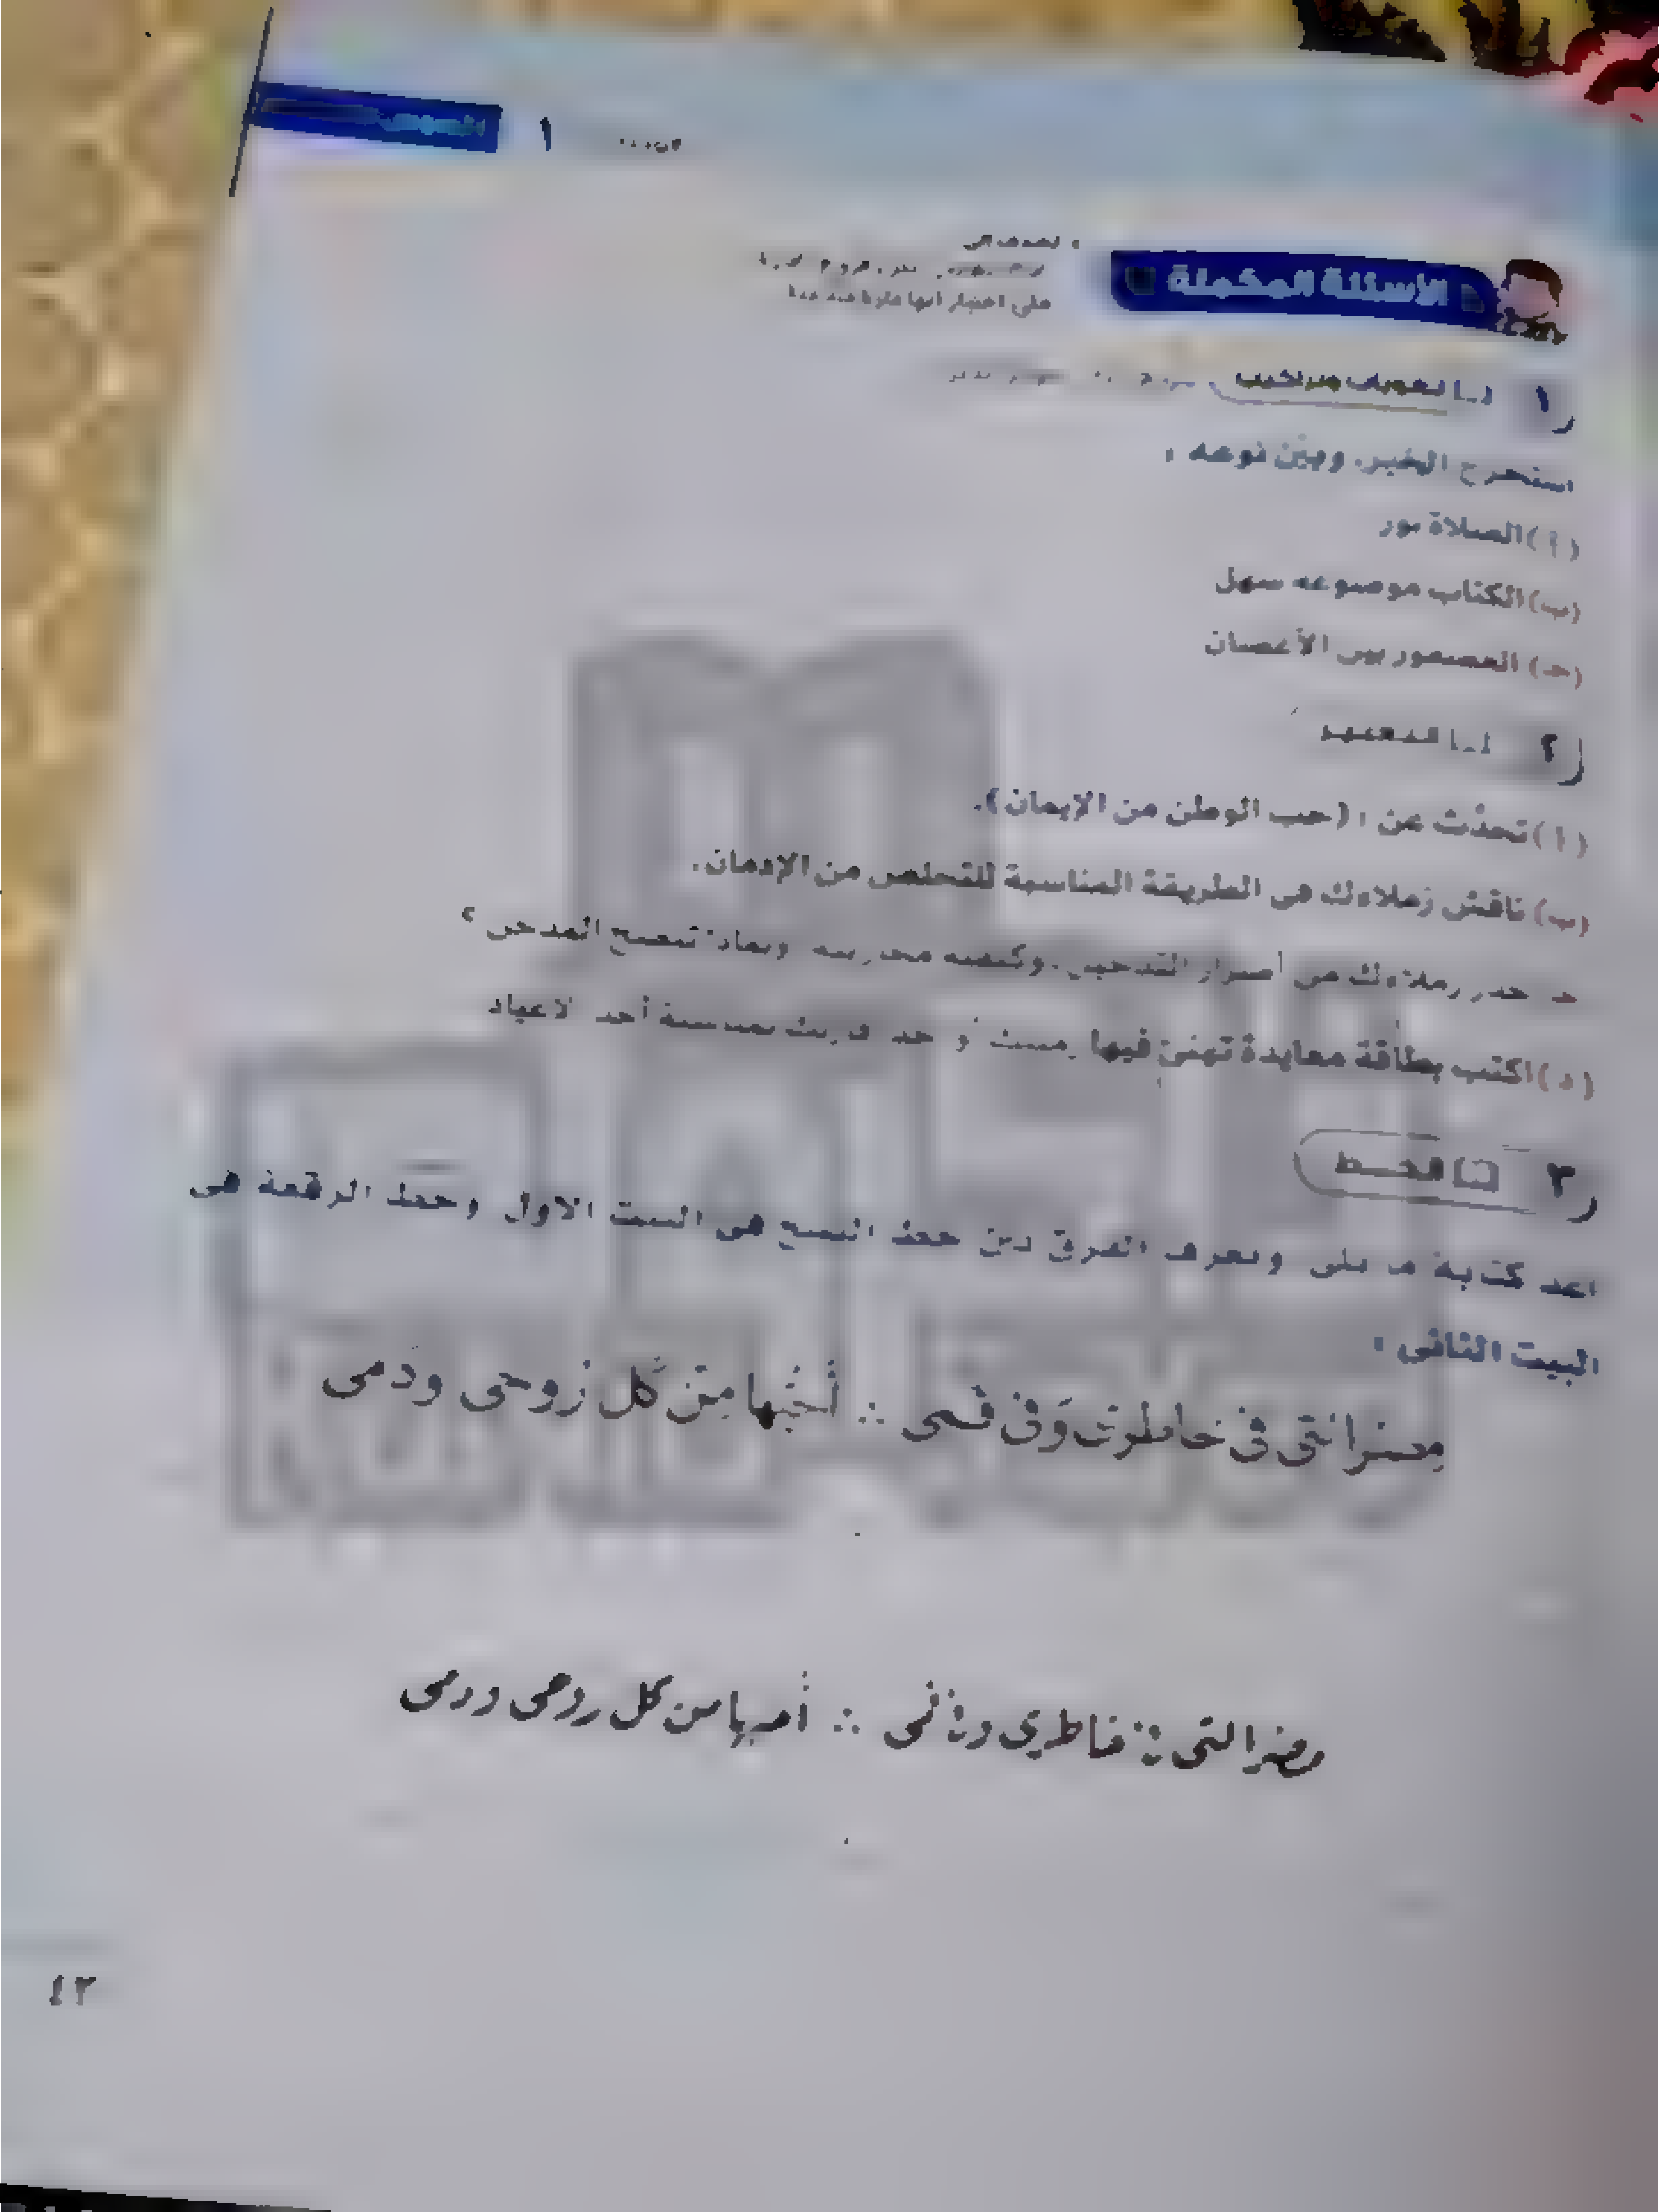 النصوص ١
الأسئلة المكملة
على اعتبار أنها
١
استخرج الخبر، وبين نوعه :
( أ ) الصلاة نور
(ب) الكتاب موضوعه سهل
(جـ) العصفور بين الأغصان
٢ التعبير
( أ ) تحدَّث عن : (حب الوطن من الإيمان).
(ب) ناقش زملاءك فى الطريقة المناسبة للتخلص من الإدمان.
حذر زملاءك من أضرار التدخين، وكيفية محاربته وبماذا تنصح المدخن ؟
( د ) اكتب بطاقة معايدة تهنئ فيها أو أحد بمناسبة أحد الأعياد
٣ الخـط
أعد كتابة ما يلى وتعرف الفرق بين خط النسخ فى البيت الأول وخط الرقعة فى
البيت الثانى :
مِصْرُ الَّتِى فِى خَاطِرِى وَفِى فَمِى ∴ أُحِبُّهَا مِنْ كُلِّ رُوحِى وَدَمِى
مصر التى فى خاطرى وفى فمى ∴ أحبها من كل روحى ودمى
٤٣